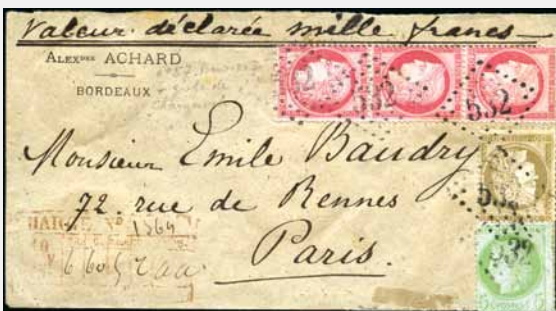 Valeur déclarée mille francs
ALEXDRE ACHARD
BORDEAUX
532
532
532
Monsieur Emile Baudry
532
72. rue de Rennes
1564
Paris.
532
5 5